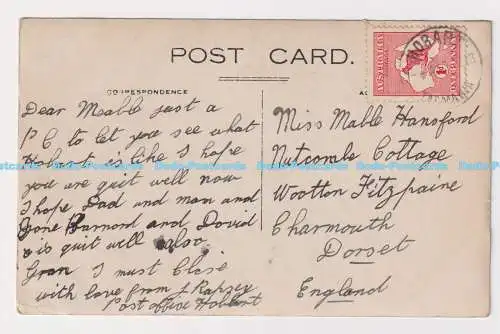 POST CARD.
CORRESPONDENCE
Dear Mable just a
P C to let you see what
Hobart is like I hope
you are quit well now
I hope Dad and mam and
and David
is quit well also
Gran I must Close
with love from J Rapsey
Post office Hobart
AUSTRALIA
ONE PENNY
1d
HOBART
TASMANIA
Miss Mable Hansford
Nutcombe Cottage
Wootton Fitzpaine
Charmouth
Dorset
England
Books-Postcards